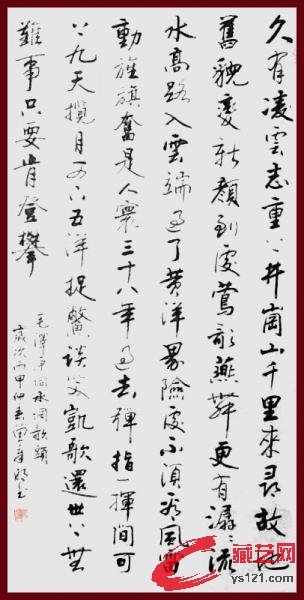 久有凌雲志重上井崗山千里來尋故地
舊貌變新顏到處鶯歌燕舞更有潺〻流
水高路入雲端過了黃洋界險處不須看風雷
動旌旗奮是人寰三十八年過去彈指一揮間可
上九天攬月可下五洋捉鱉談笑凱歌還世上無
難事只要肯登攀
毛澤東詞水調歌頭
歲次丙申仲春書
藏艺网
ys121.com